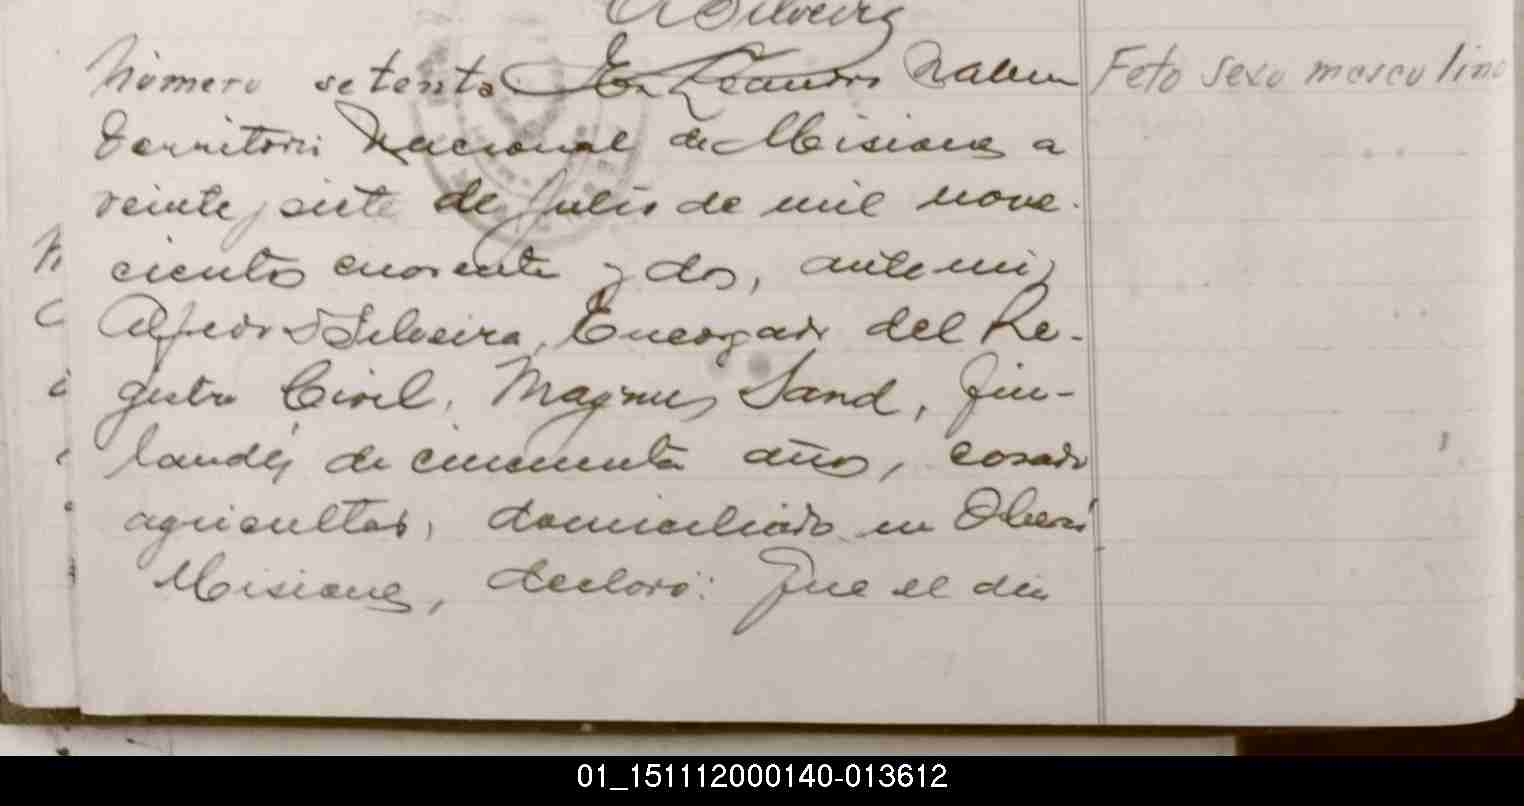 A Silveira
Número setenta En Leandro N. Alem
Territorio Nacional de Misiones a
veinte y siete de Julio de mil nove-
cientos cuarenta y dos, ante mi,
Alfredo D Silveira, Encargado del Re-
gistro Civil, Magnus Sand, fin-
landés de cincuenta años, casado
agricultor, domiciliado en Oberá
Misiones, declaró: Que el día
Feto sexo masculino
01_151112000140-013612